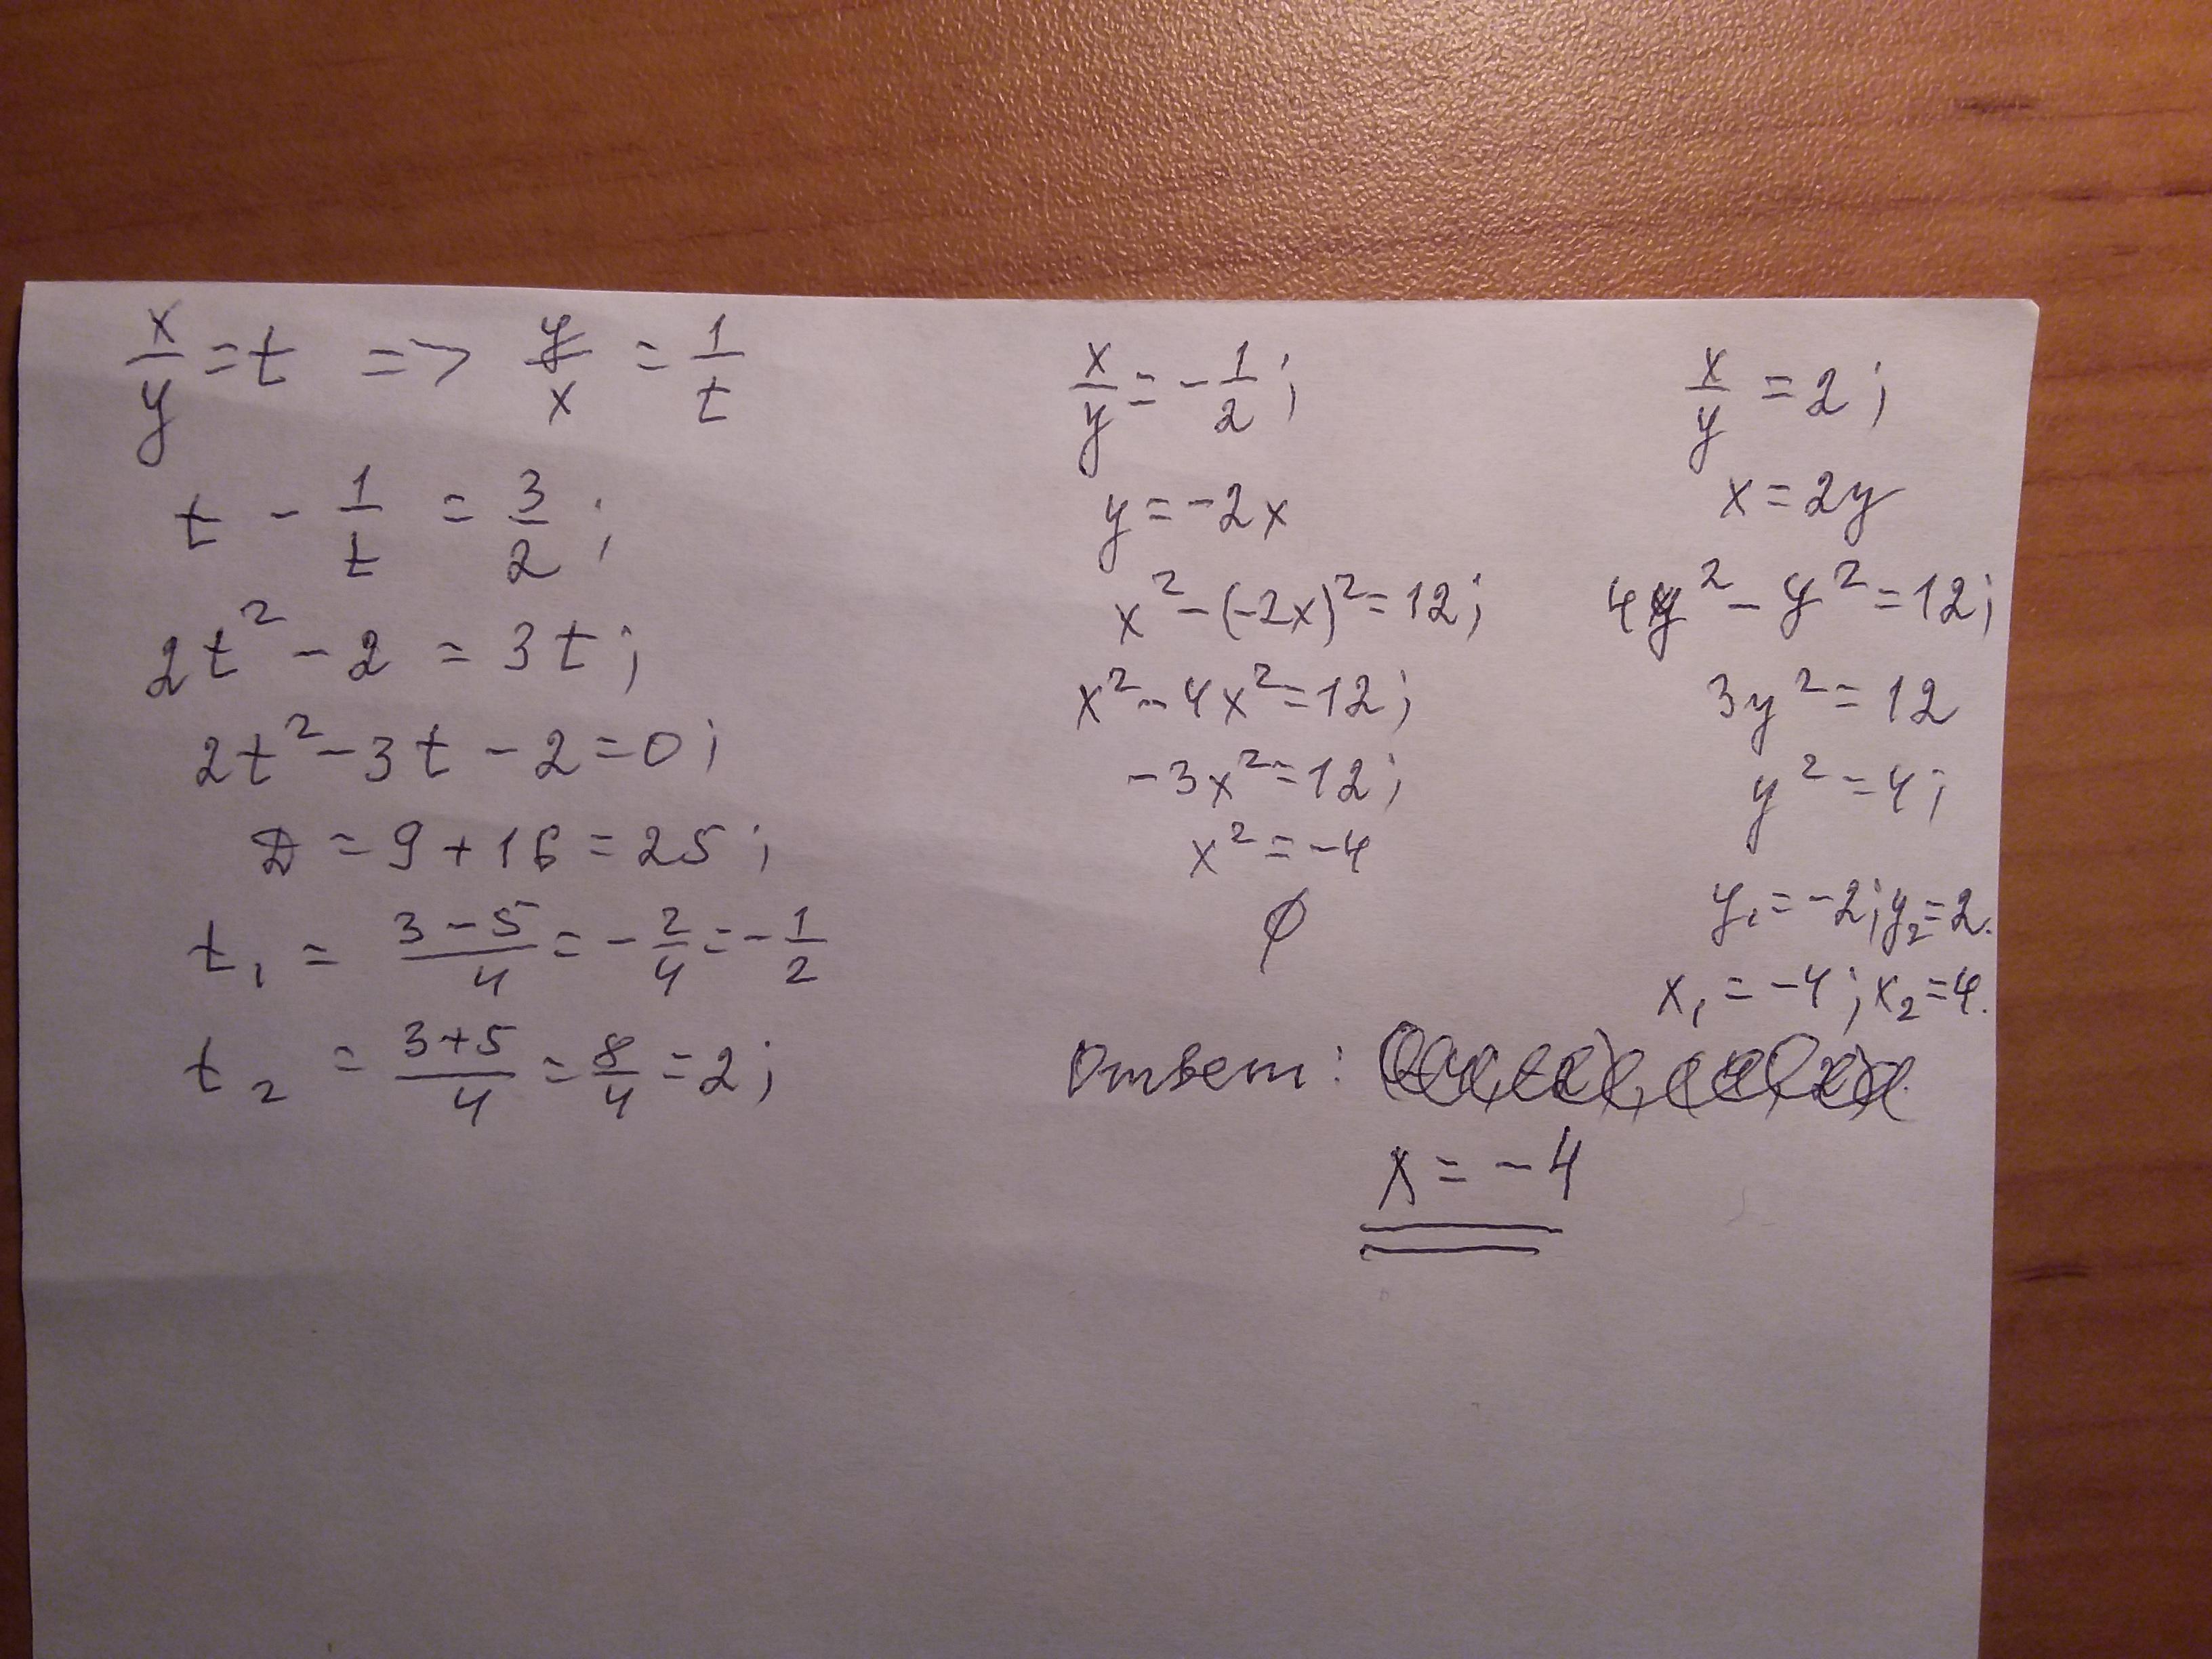 x/y = t => y/x = 1/t
t - 1/t = 3/2;
2t² - 2 = 3t;
2t² - 3t - 2 = 0;
D = 9 + 16 = 25;
t₁ = (3 - 5)/4 = -2/4 = -1/2
t₂ = (3+5)/4 = 8/4 = 2;
x/y = -1/2;
y = -2x
x² - (-2x)² = 12;
x² - 4x² = 12;
-3x² = 12;
x² = -4
∅
x/y = 2;
x = 2y
4y² - y² = 12;
3y² = 12
y² = 4;
y₁ = -2; y₂ = 2.
x₁ = -4; x₂ = 4.
Ответ:
x = -4